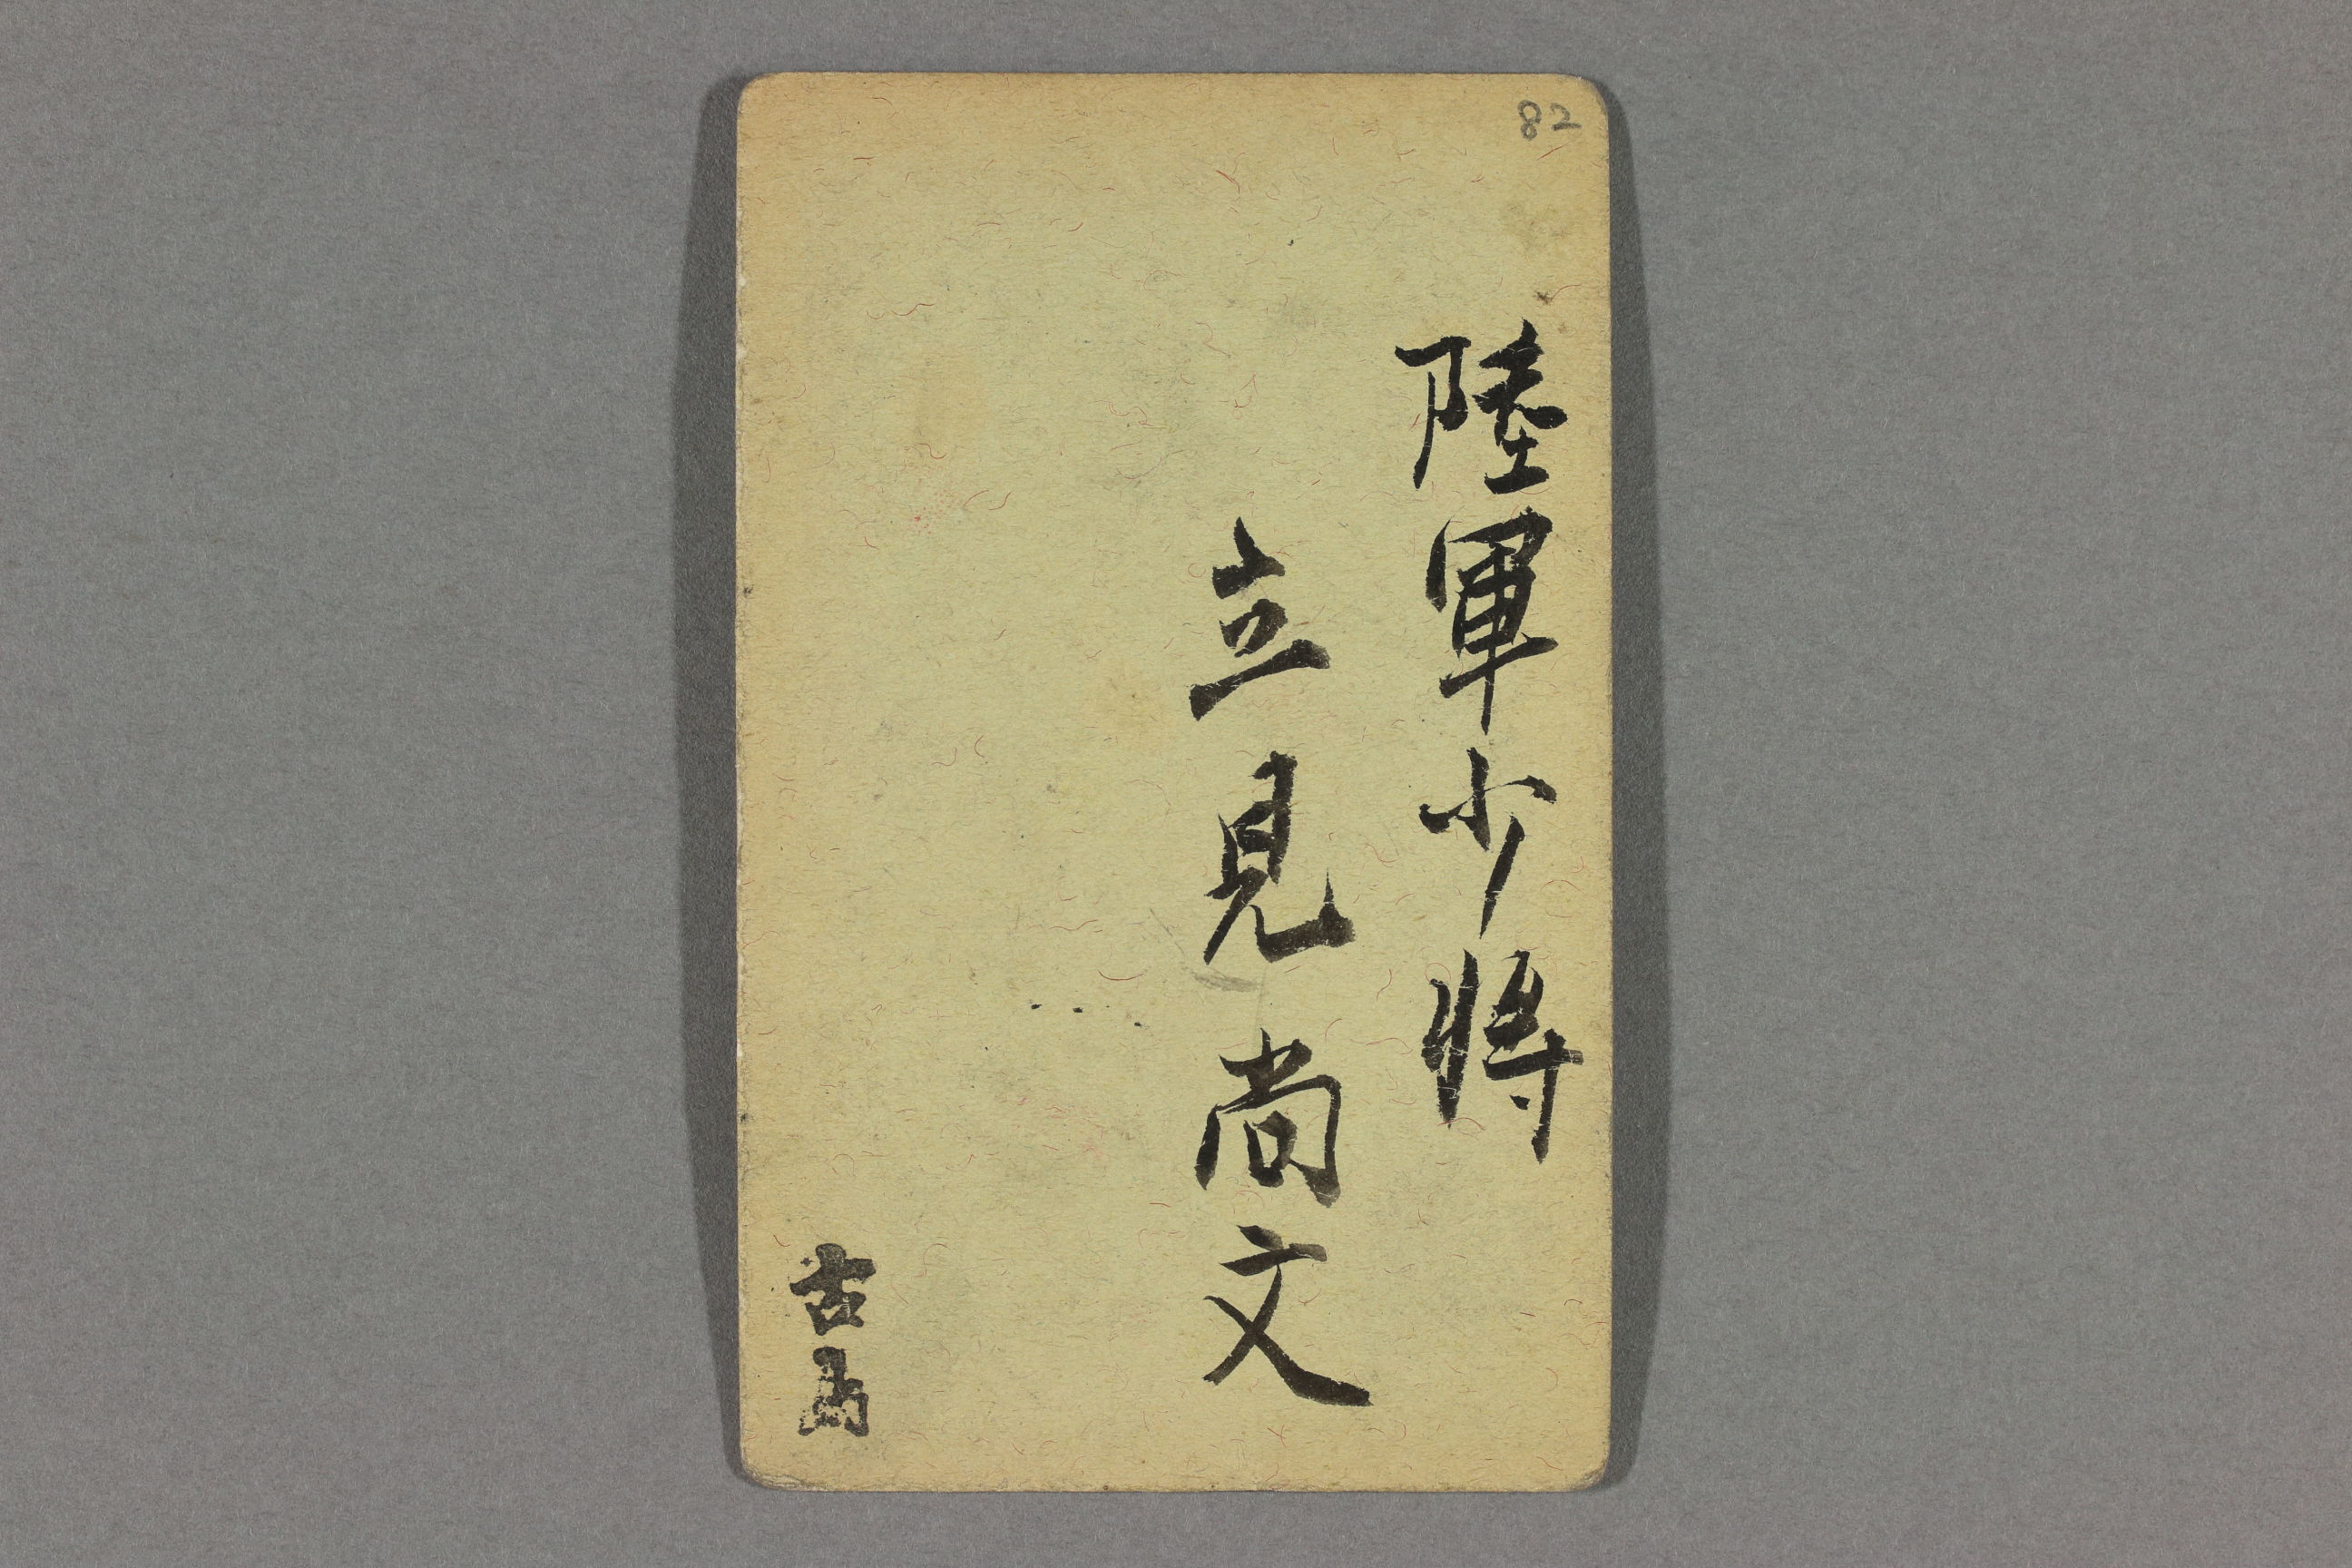 82
陸軍少將
立見尚文